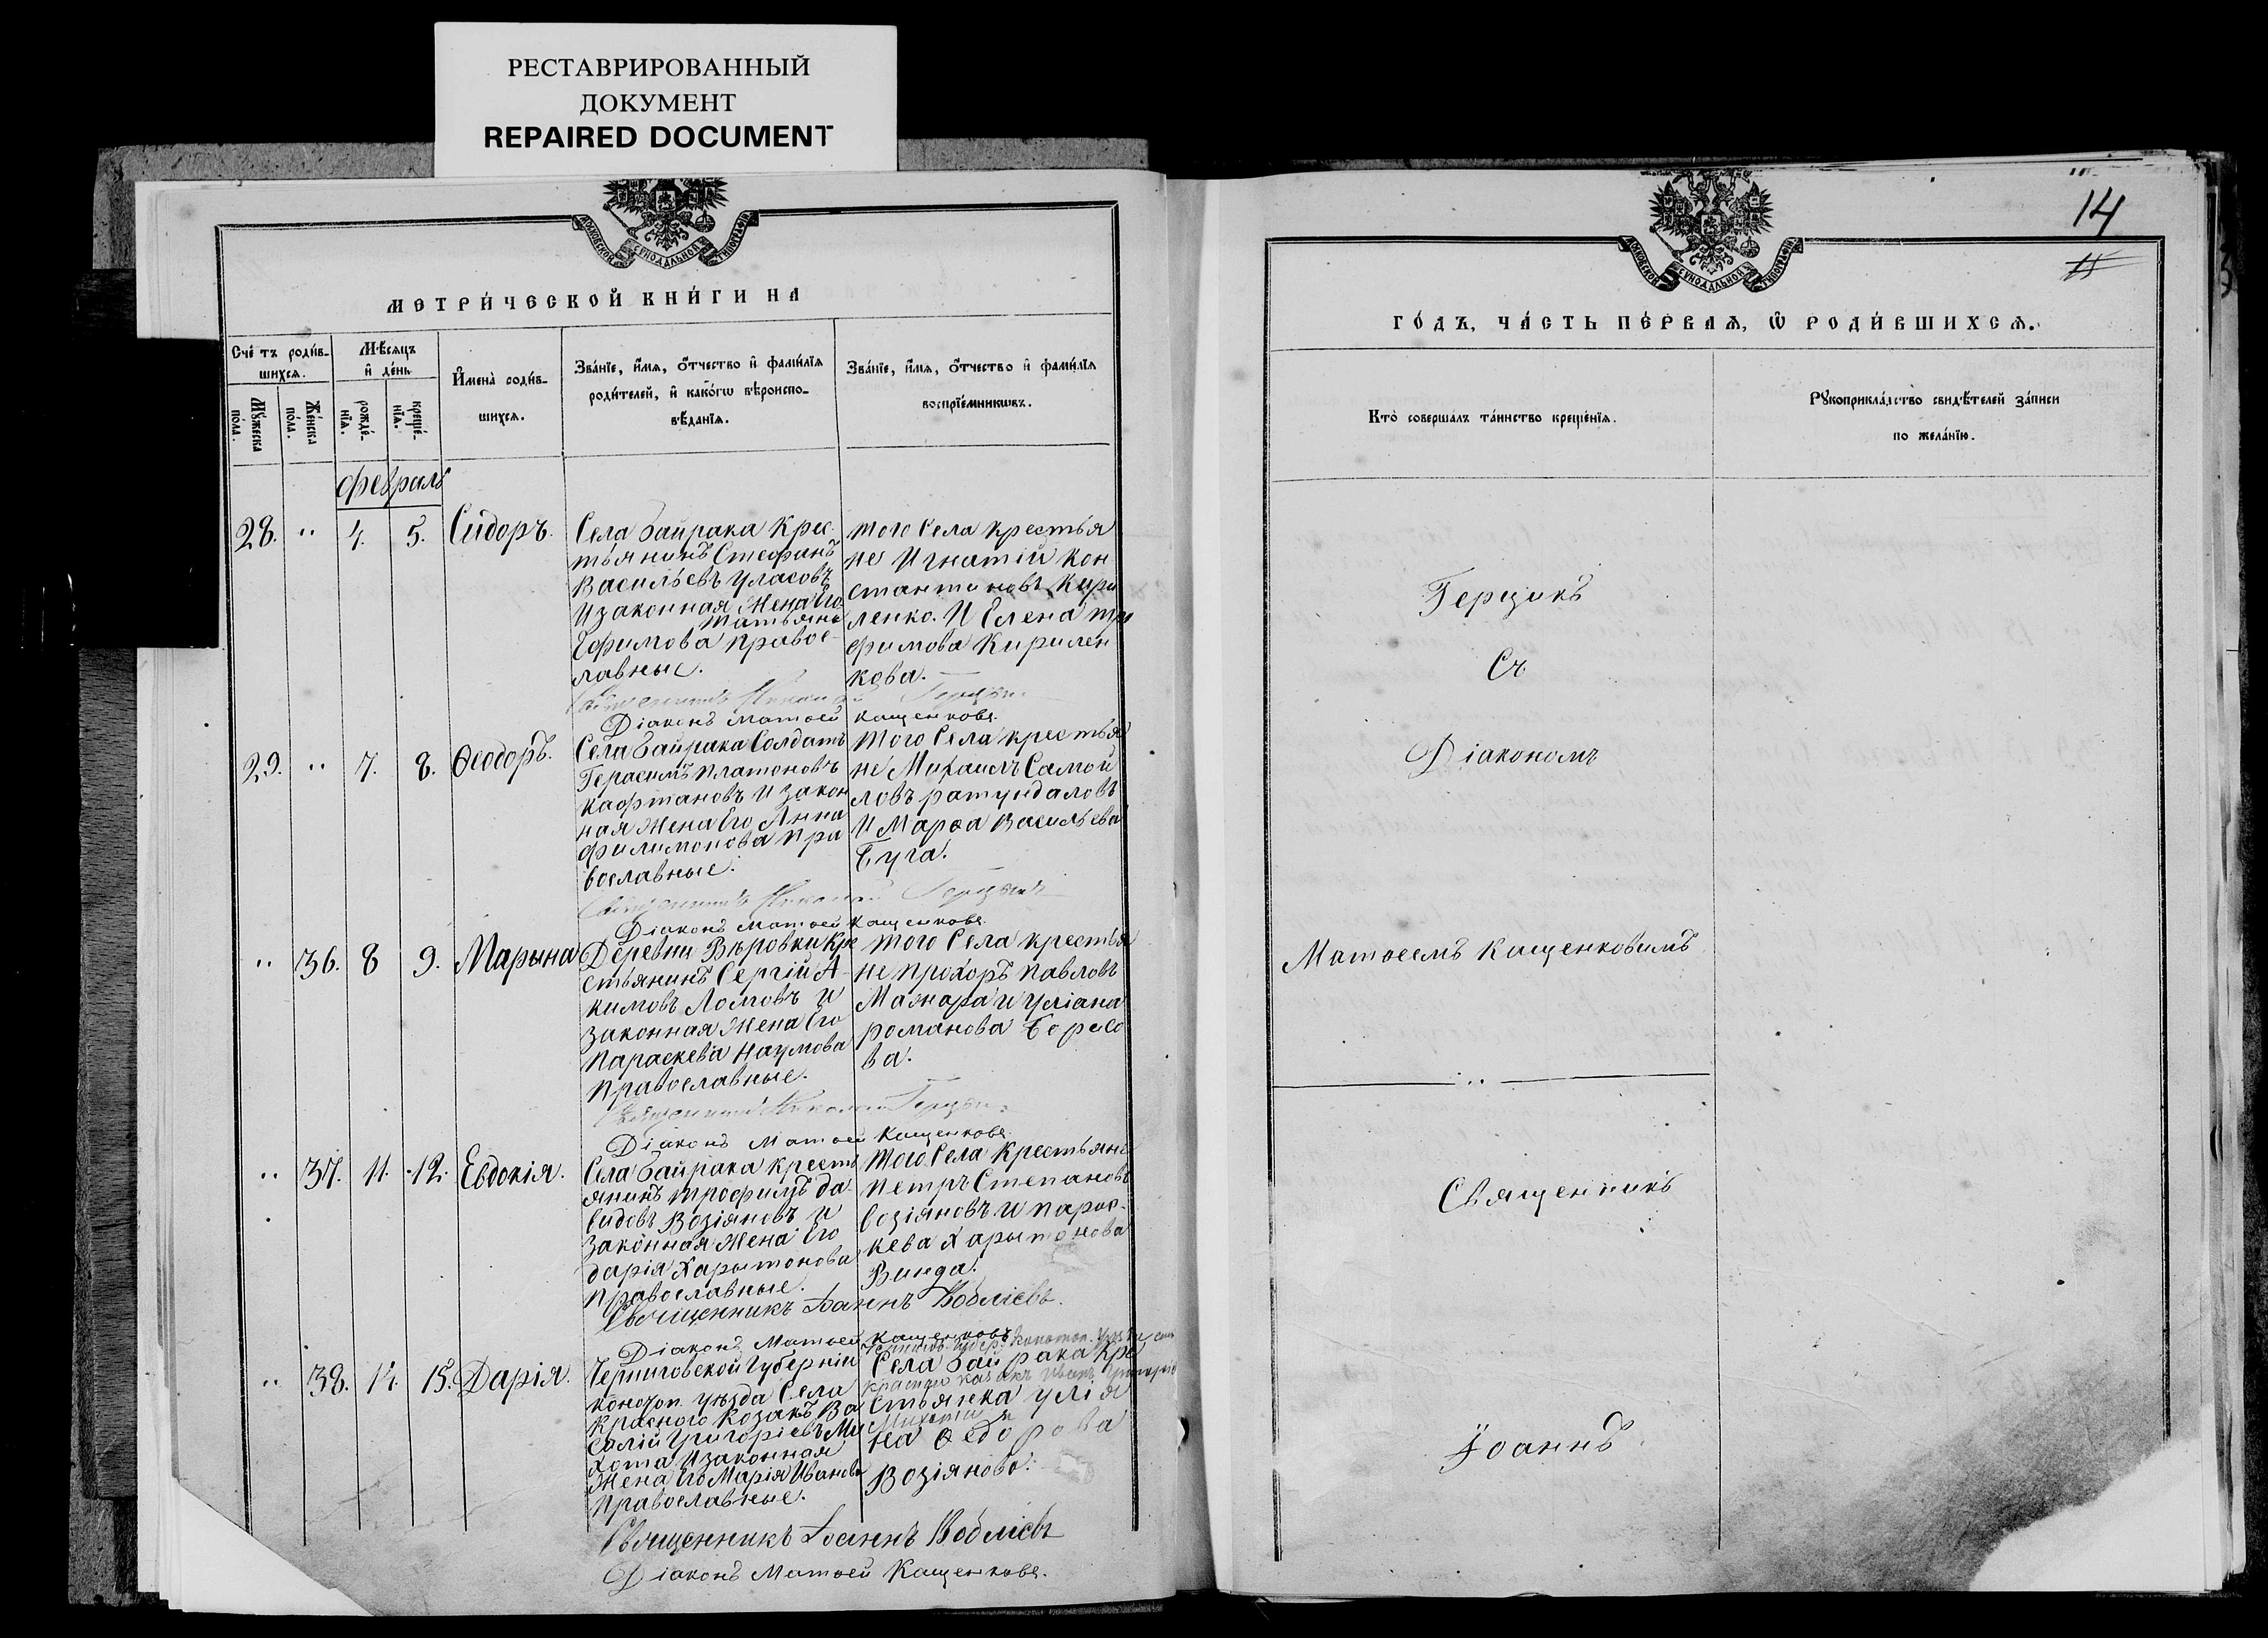 РЕСТАВРИРОВАННЫЙ
ДОКУМЕНТ
REPAIRED DOCUMENT
МОСКОВСКОЙ СѴНОДАЛЬНОЙ ТИПОГРАФІИ
МЕТРИ́ЧЕСКОЙ КНИ́ГИ НА
Сче́тъ роди́в-
шихся.
Мѣ́сяцъ
и҆ де́нь
Мꙋжеска
по́ла.
Же́нска
по́ла.
рожде́-
нїя.
креще́-
нїя.
И҆мена̀ роди́в-
шихся.
Зва́нїе, и҆́мя, ѻ҆́тчество и҆ фами́лїя
роди́телей, и҆ како́гѡ вѣроиспо-
вѣ́данїя.
Зва́нїе, и҆́мя, ѻ҆́тчество и҆ фами́лїя
воспрїе́мникѡвъ.
февраль
28. " 4. 5. Сидоръ.
Села Байрака Крес
тьянинъ Стефанъ
Васильевъ Уласовъ
И законная Жена Его
Татьяна
Ефимова правос-
лавные.
того Села крестья
не Игнатій Кон
стантиновъ Кири
ленко. И Елена тро
фимова Кирилен
кова.
Священникъ Николай Герцыкъ
Діаконъ Матѳей Кащенковъ.
29. " 7. 8. Ѳеодоръ.
Села Байрака Солдатъ
Герасимъ Платоновъ
кафтановъ И закон
ная Жена Его Анна
филимонова пра
вославные.
Того Села крестья
не Михаилъ Самой
ловъ ратундаловъ
И Марѳа Васильева
Буга.
Священникъ Николай Герцыкъ
Діаконъ Матѳей Кащенковъ.
" 36. 8 9. Марына
Деревни Вѣровки Кре
стьянинъ Сергій А-
кимовъ Ломовъ и
Законная Жена Его
Параскева Наумова
Православные.
того Села крестья
не прохоръ павловъ
Мажара и Уліана
романова Борисо
ва.
Священникъ Николай Герцыкъ
Діаконъ Матѳей Кащенковъ
" 37. 11. 12. Евдокія.
Села Байрака кресть
янинъ трофимъ да
видовъ Возіяновъ и
Законная Жена Его
дарія Харытонова
Православные.
Того Села Крестьяне
петръ Степановъ
Возіяновъ и парас-
кева Харытонова
Винда.
Священникъ Іоаннъ Воблієвъ.
Діаконъ Матѳей Кащенковъ
" 38. 14. 15. Дарія.
Черниговской Губерніи
коно́топ. уѣзда Села
Красного Козакъ Ва
силій Григоріевъ Ми
хота И законная
Жена Его Марія Иванова
Православные.
Села Байрака Кре
стьянка Улія
на Ѳедорова
Возіянова.
Священникъ Іоаннъ Воблієвъ
Діаконъ Матѳей Кащенковъ.
14
МОСКОВСКОЙ СѴНОДАЛЬНОЙ ТИПОГРАФІИ
ГО́ДЪ, ЧА́СТЬ ПЕ́РВАЯ, Ѡ҆ РОДИ́ВШИХСЯ.
Кто̀ соверша́лъ та́инство креще́нїя.
Рꙋкоприкла́дство свидѣ́телей за́писи
по жела́нїю.
Герцикъ
Съ
Діакономъ
Матѳеемъ Кащенковимъ
Священникъ
Іоаннъ